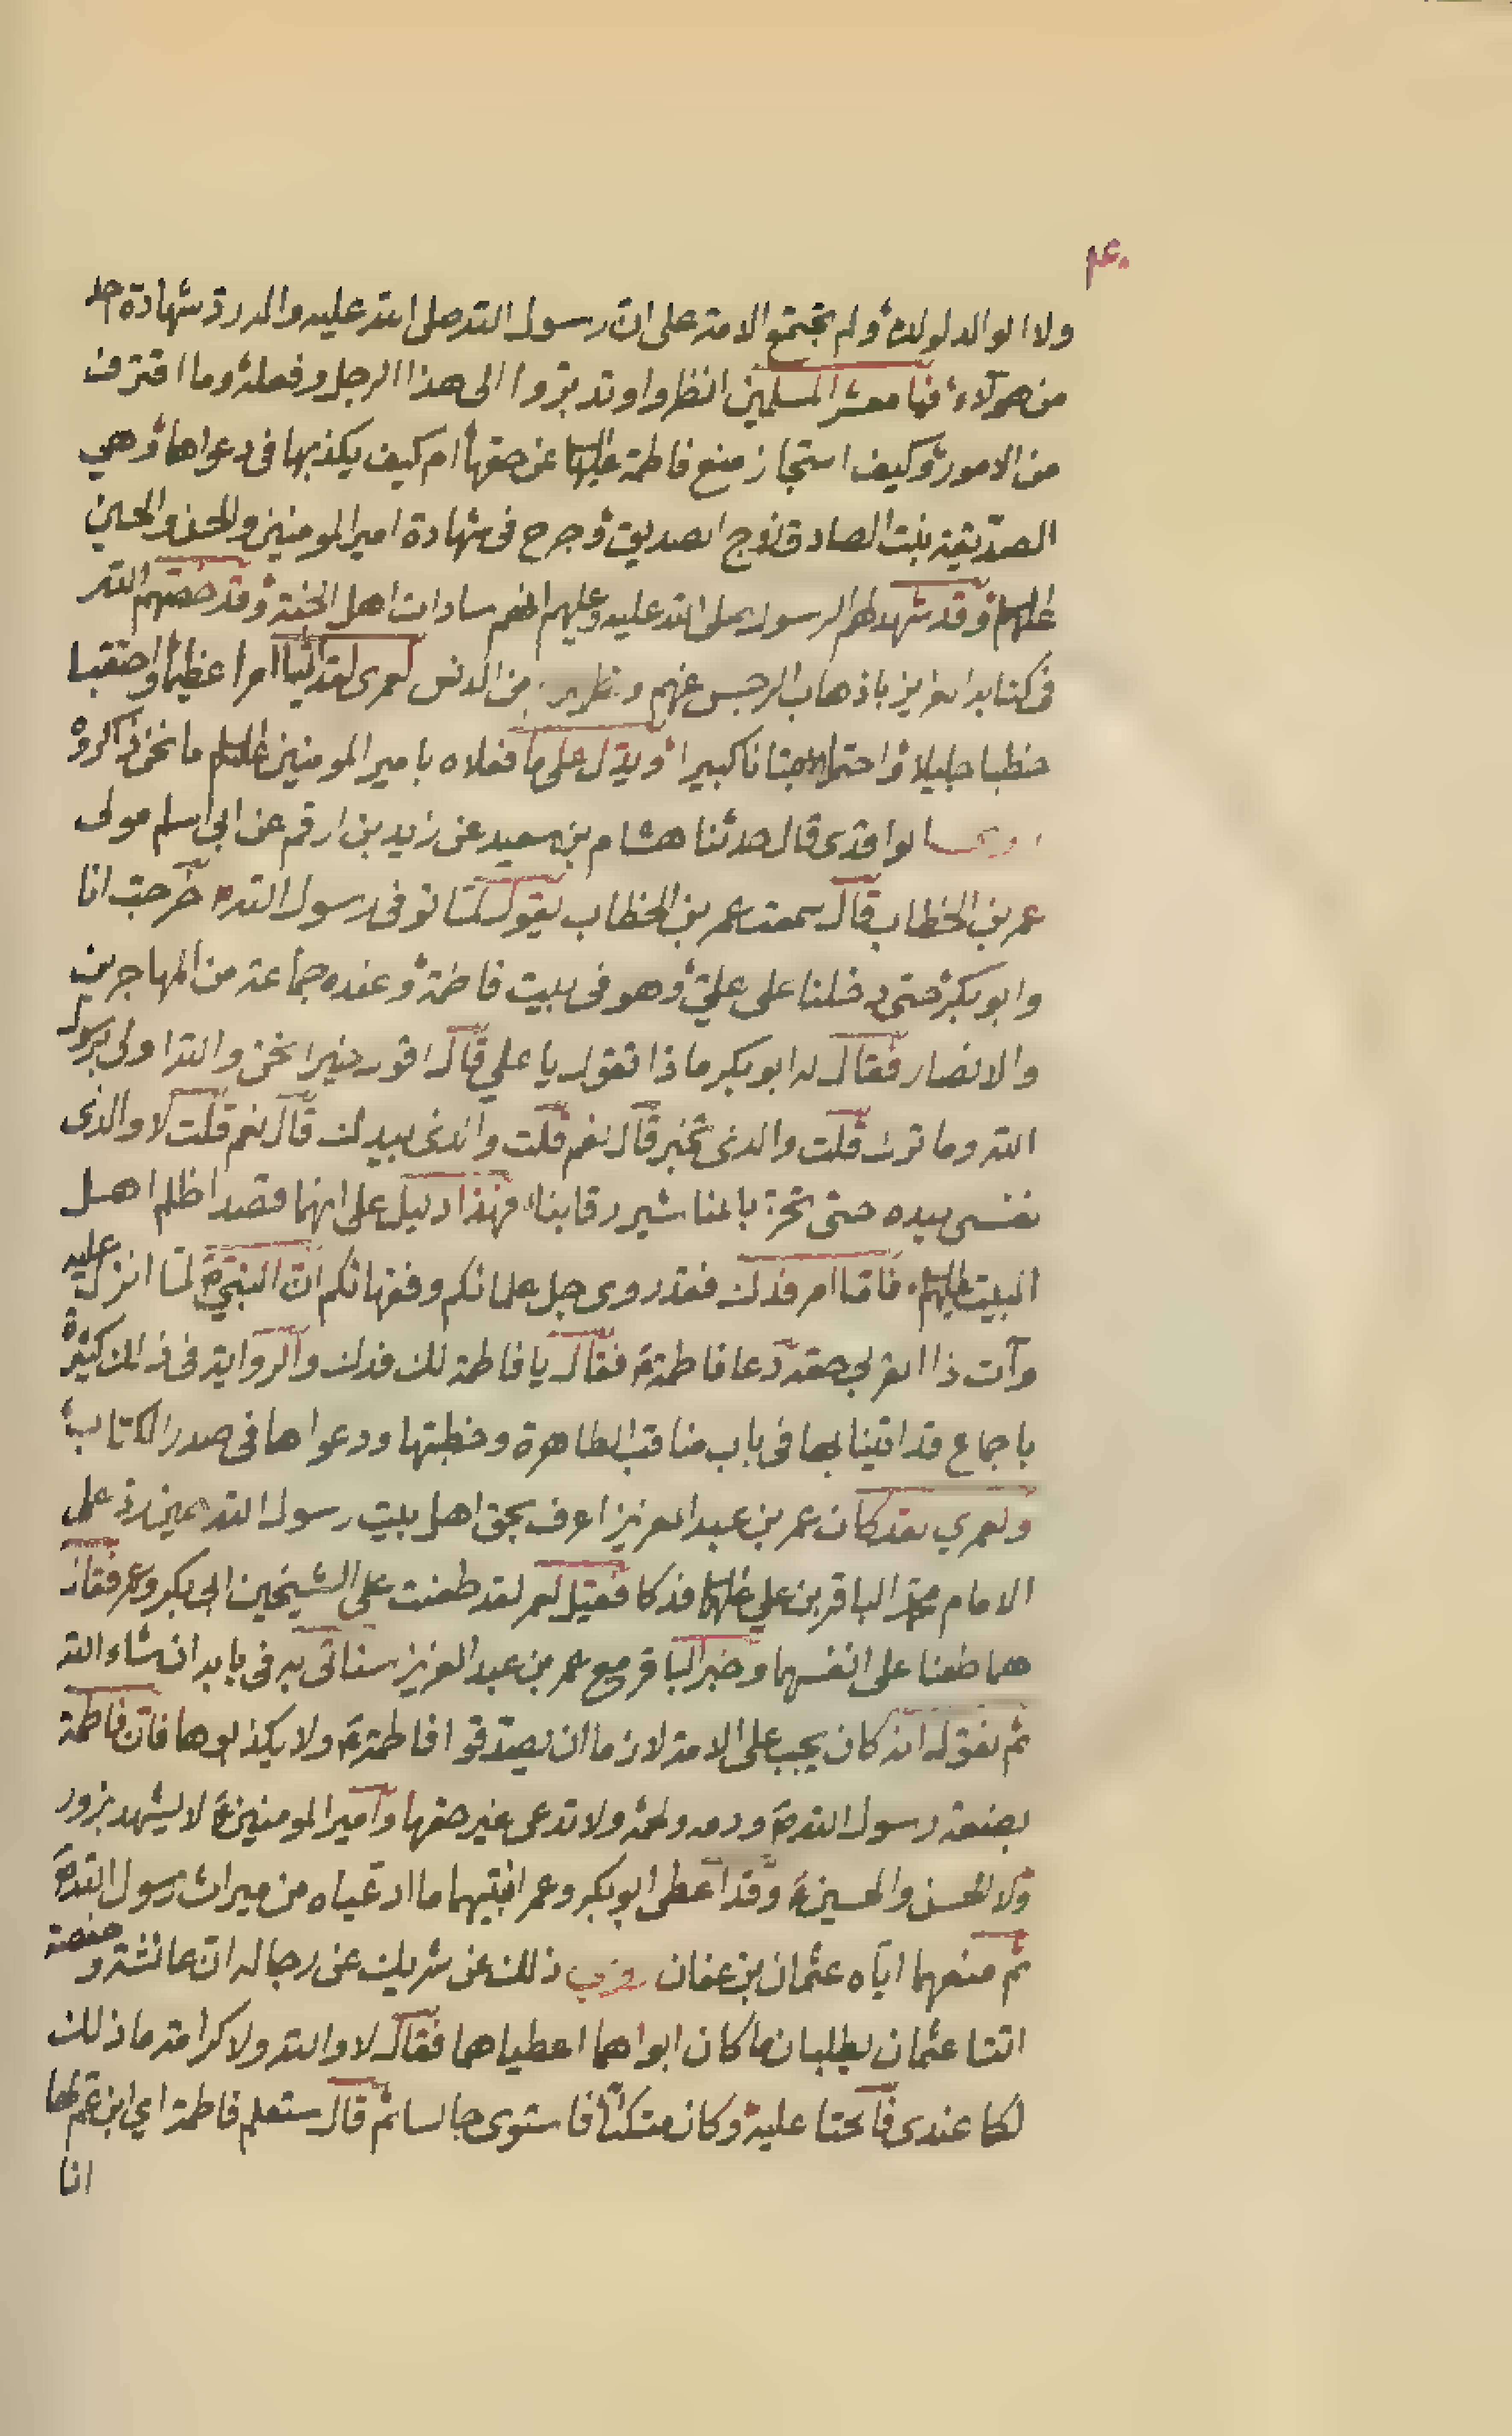 ولا الوالد لولده ولم تجتمع الامة على ان رسول الله صلى الله عليه واله رد شهادة احد
من هولاء فيا معشر المسلمين انظروا وتدبروا الى هذا الرجل وفعله وما اقترف
من الامور وكيف استجاز منع فاطمة عليها عن حقها ام كيف يكذبها في دعواها وهي
الصديقة بنت الصادق زوج الصديق وجرح في شهادة امير المومنين والحسن والحسين
عليهم وقد شهد لهم الرسول صلى الله عليه وعليهم انهم سادات اهل الجنة وقد خصهم الله
في كتابه العزيز باذهاب الرجس عنهم من الدنس لعمري لقد اتيا امرا عظيما واحتقبا
خطبا جليلا واحتملا بهتانا كبيرا ويدل على ما فعلاه بامير المومنين عليه السلم ما نحن ذاكروه
الواقدي قال حدثنا هشام بن سعيد عن زيد بن ارقم عن ابي اسلم مولى
عمر بن الخطاب قال سمعت عمر بن الخطاب يقول لما توفى رسول الله خرجت انا
وابو بكر حتى دخلنا على علي وهو في بيت فاطمة وعنده جماعة من المهاجرين
والانصار فقال له ابو بكر ماذا تقول يا علي قال اقول خيرا نحن والله اولى برسول
الله وما ترك قلت والذي بخيبر قال نعم قلت والذي بيدك قال نعم قلت لا والذي
نفسي بيده حتى تحز بالمناشير رقابنا فهذا دليل على انهما قصدا ظلم اهل
البيت عليهم فاما امر فدك فقد روى جل علمائكم وفقهائكم ان النبي ص لما انزل عليه
وآت ذا القربى حقه دعا فاطمة ع فقال يا فاطمة لك فدك والرواية في ذلك كثيرة
باجماع قد اتينا بها في باب مناقب الطاهرة وخطبتها ودعواها في صدر الكتاب
ولعمري لقد كان عمر بن عبد العزيز اعرف بحق اهل بيت رسول الله حين رد على
الامام محمد الباقر بن علي عليهما فدكا فقيل لعمر لقد طعنت على الشيخين ابي بكر وعمر فقال
هما طعنا على انفسهما وخبر الباقر مع عمر بن عبد العزيز سناتي به في بابه ان شاء الله
ثم نقول انه كان يجب على الامة لازما ان يصدقوا فاطمة ع ولا يكذبوها فان فاطمة
بضعة رسول الله ص ودمه ولحمه ولا تدعى غير حقها وامير المومنين ع لا يشهد بزور
ولا الحسن والحسين ع وقد اعطى ابو بكر وعمر ابنتيهما ما ادعياه من ميراث رسول الله ص
ثم منعهما اياه عثمان بن عفان روى ذلك عن شريك عن رجاله ان عائشة وحفصة
اتتا عثمان يطلبان ما كان ابواهما اعطياهما فقال لا والله ولا كرامة ما ذلك
لكما عندي فالحتا عليه وكان متكئا فاستوى جالسا ثم قال ستعلم فاطمة اي ابن عم لها
انا